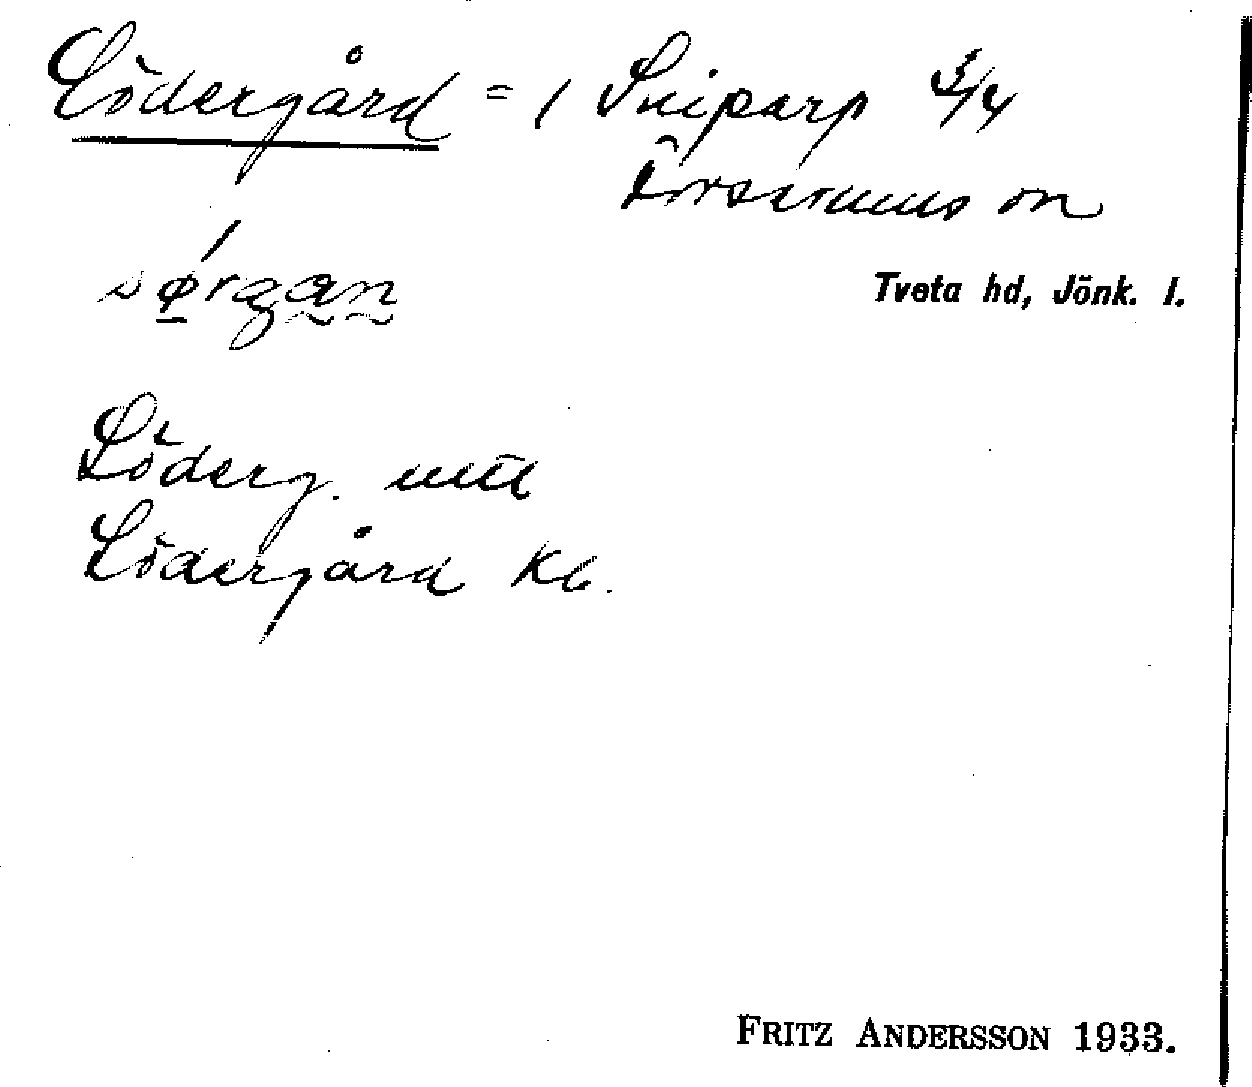 Södergård = 1 Sniparp 3/4
Forserums sn
sørgan
Tveta hd, Jönk. l.
Söderg. uttl
Södergård Kb.
FRITZ ANDERSSON 1933.